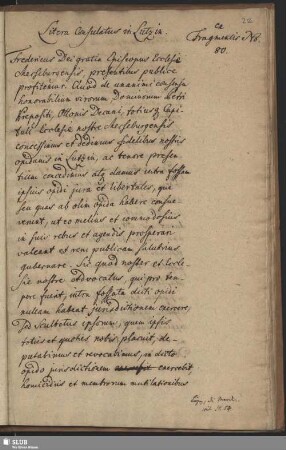 Litera Consulatus in Lutzin.
ex
Fragmentis No.
80.
22
Fredericus Dei gratia Episcopus Ecclesiæ
Merseburgensis, presentibus publice
profitemur. Quod de unanimi consensu
honorabilium virorum, Dominorum Petri
Prepositi, Ottonis Decani, totiusq Capi-
tuli Ecclesiæ nostre Merseburgensis
concessimus et dedimus fidelibus nostris
opidanis in Lutzin, ac tenore presen-
tium concedimus atq damus intra fossam
ipsius opidi jura et libertates, qui
seu quas ab olim opida habere consue-
verunt, ut eo melius et commodosius
in suis rebus et agendis prosperari
valeant et rem publicam salubrius
gubernare. Sic quod noster et Eccle-
siæ nostre Advocatus, qui pro tem-
pore fuerit, intra fossata dicti opidi
nullam habeat jurisdictionem exercere,
Sed Scultetus ipsorum, quem ipsis
toties et quoties nobis placuit, de-
putabimus et revocabimus, in dicto
opido jurisdictionem exercebit
homicidiis et membrorum mutilationibus
SLUB
Wir führen Wissen.